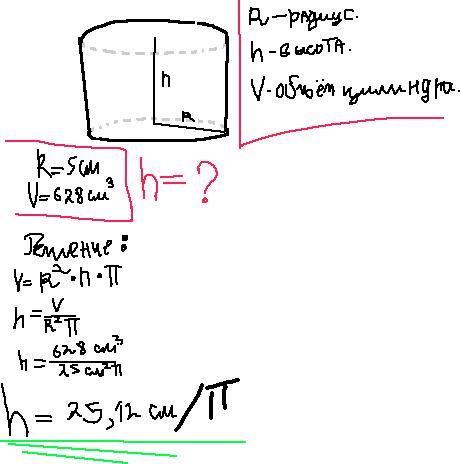 R-радиус.
h-высота.
V-объём цилиндра.
h
R
R=5см
V=628см³
h=?
Решение:
V=R²·h·π
h=V/R²π
h=628 см³/25 см²π
h=25,12 см/π